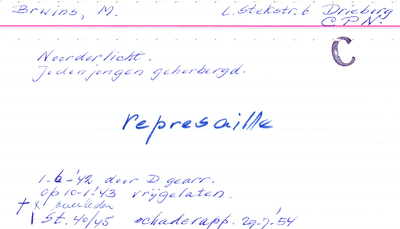 Bruins, M. L. Stekstr. 6 Drieberg
C.P.N.
C
Noorderlicht.
Jodenjongen geherbergd.
represaille
1-6-'42 door D gearr.
op 10-1-'43 vrijgelaten.
† x overleden
St. 40/45 schaderapp. 29-7-'54